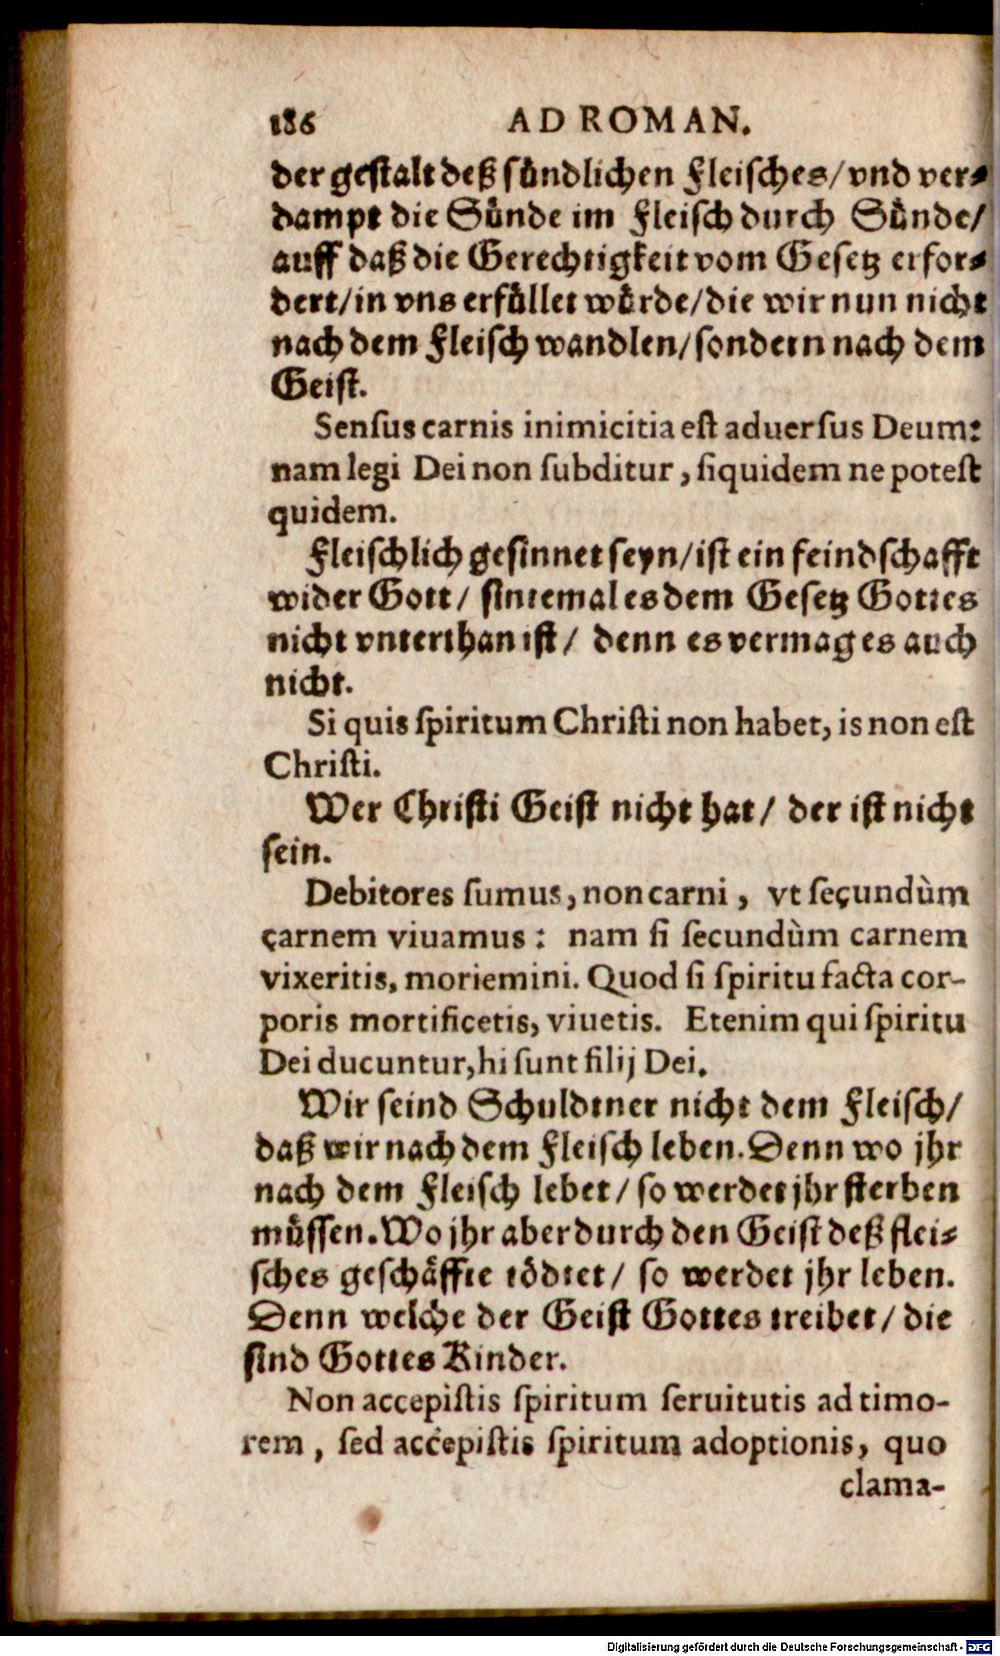 186 AD ROMAN.
der gestalt deß sündlichen Fleisches/ vnd ver-
dampt die Sünde im Fleisch durch Sünde/
auff daß die Gerechtigkeit vom Gesetz erfor-
dert/ in vns erfüllet würde/ die wir nun nicht
nach dem Fleisch wandlen/ sondern nach dem
Geist.
Senſus carnis inimicitia eſt aduerſus Deum:
nam legi Dei non ſubditur, ſiquidem ne poteſt
quidem.
Fleischlich gesinnet seyn/ ist ein feindschafft
wider Gott/ sintemal es dem Gesetz Gottes
nicht vnterthan ist/ denn es vermag es auch
nicht.
Si quis ſpiritum Chriſti non habet, is non eſt
Chriſti.
Wer Christi Geist nicht hat/ der ist nicht
sein.
Debitores ſumus, non carni, vt ſeçundùm
çarnem viuamus: nam ſi ſecundùm carnem
vixeritis, moriemini. Quod ſi ſpiritu facta cor-
poris mortificetis, viuetis. Etenim qui ſpiritu
Dei ducuntur, hi ſunt filij Dei.
Wir seind Schuldtner nicht dem Fleisch/
daß wir nach dem Fleisch leben. Denn wo jhr
nach dem Fleisch lebet/ so werdet jhr sterben
müssen. Wo jhr aber durch den Geist deß flei-
sches geschäffte tödtet/ so werdet jhr leben.
Denn welche der Geist Gottes treibet/ die
sind Gottes Kinder.
Non accepiſtis ſpiritum ſeruitutis ad timo-
rem, ſed accepiſtis ſpiritum adoptionis, quo
clama-
Digitalisierung gefördert durch die Deutsche Forschungsgemeinschaft - DFG